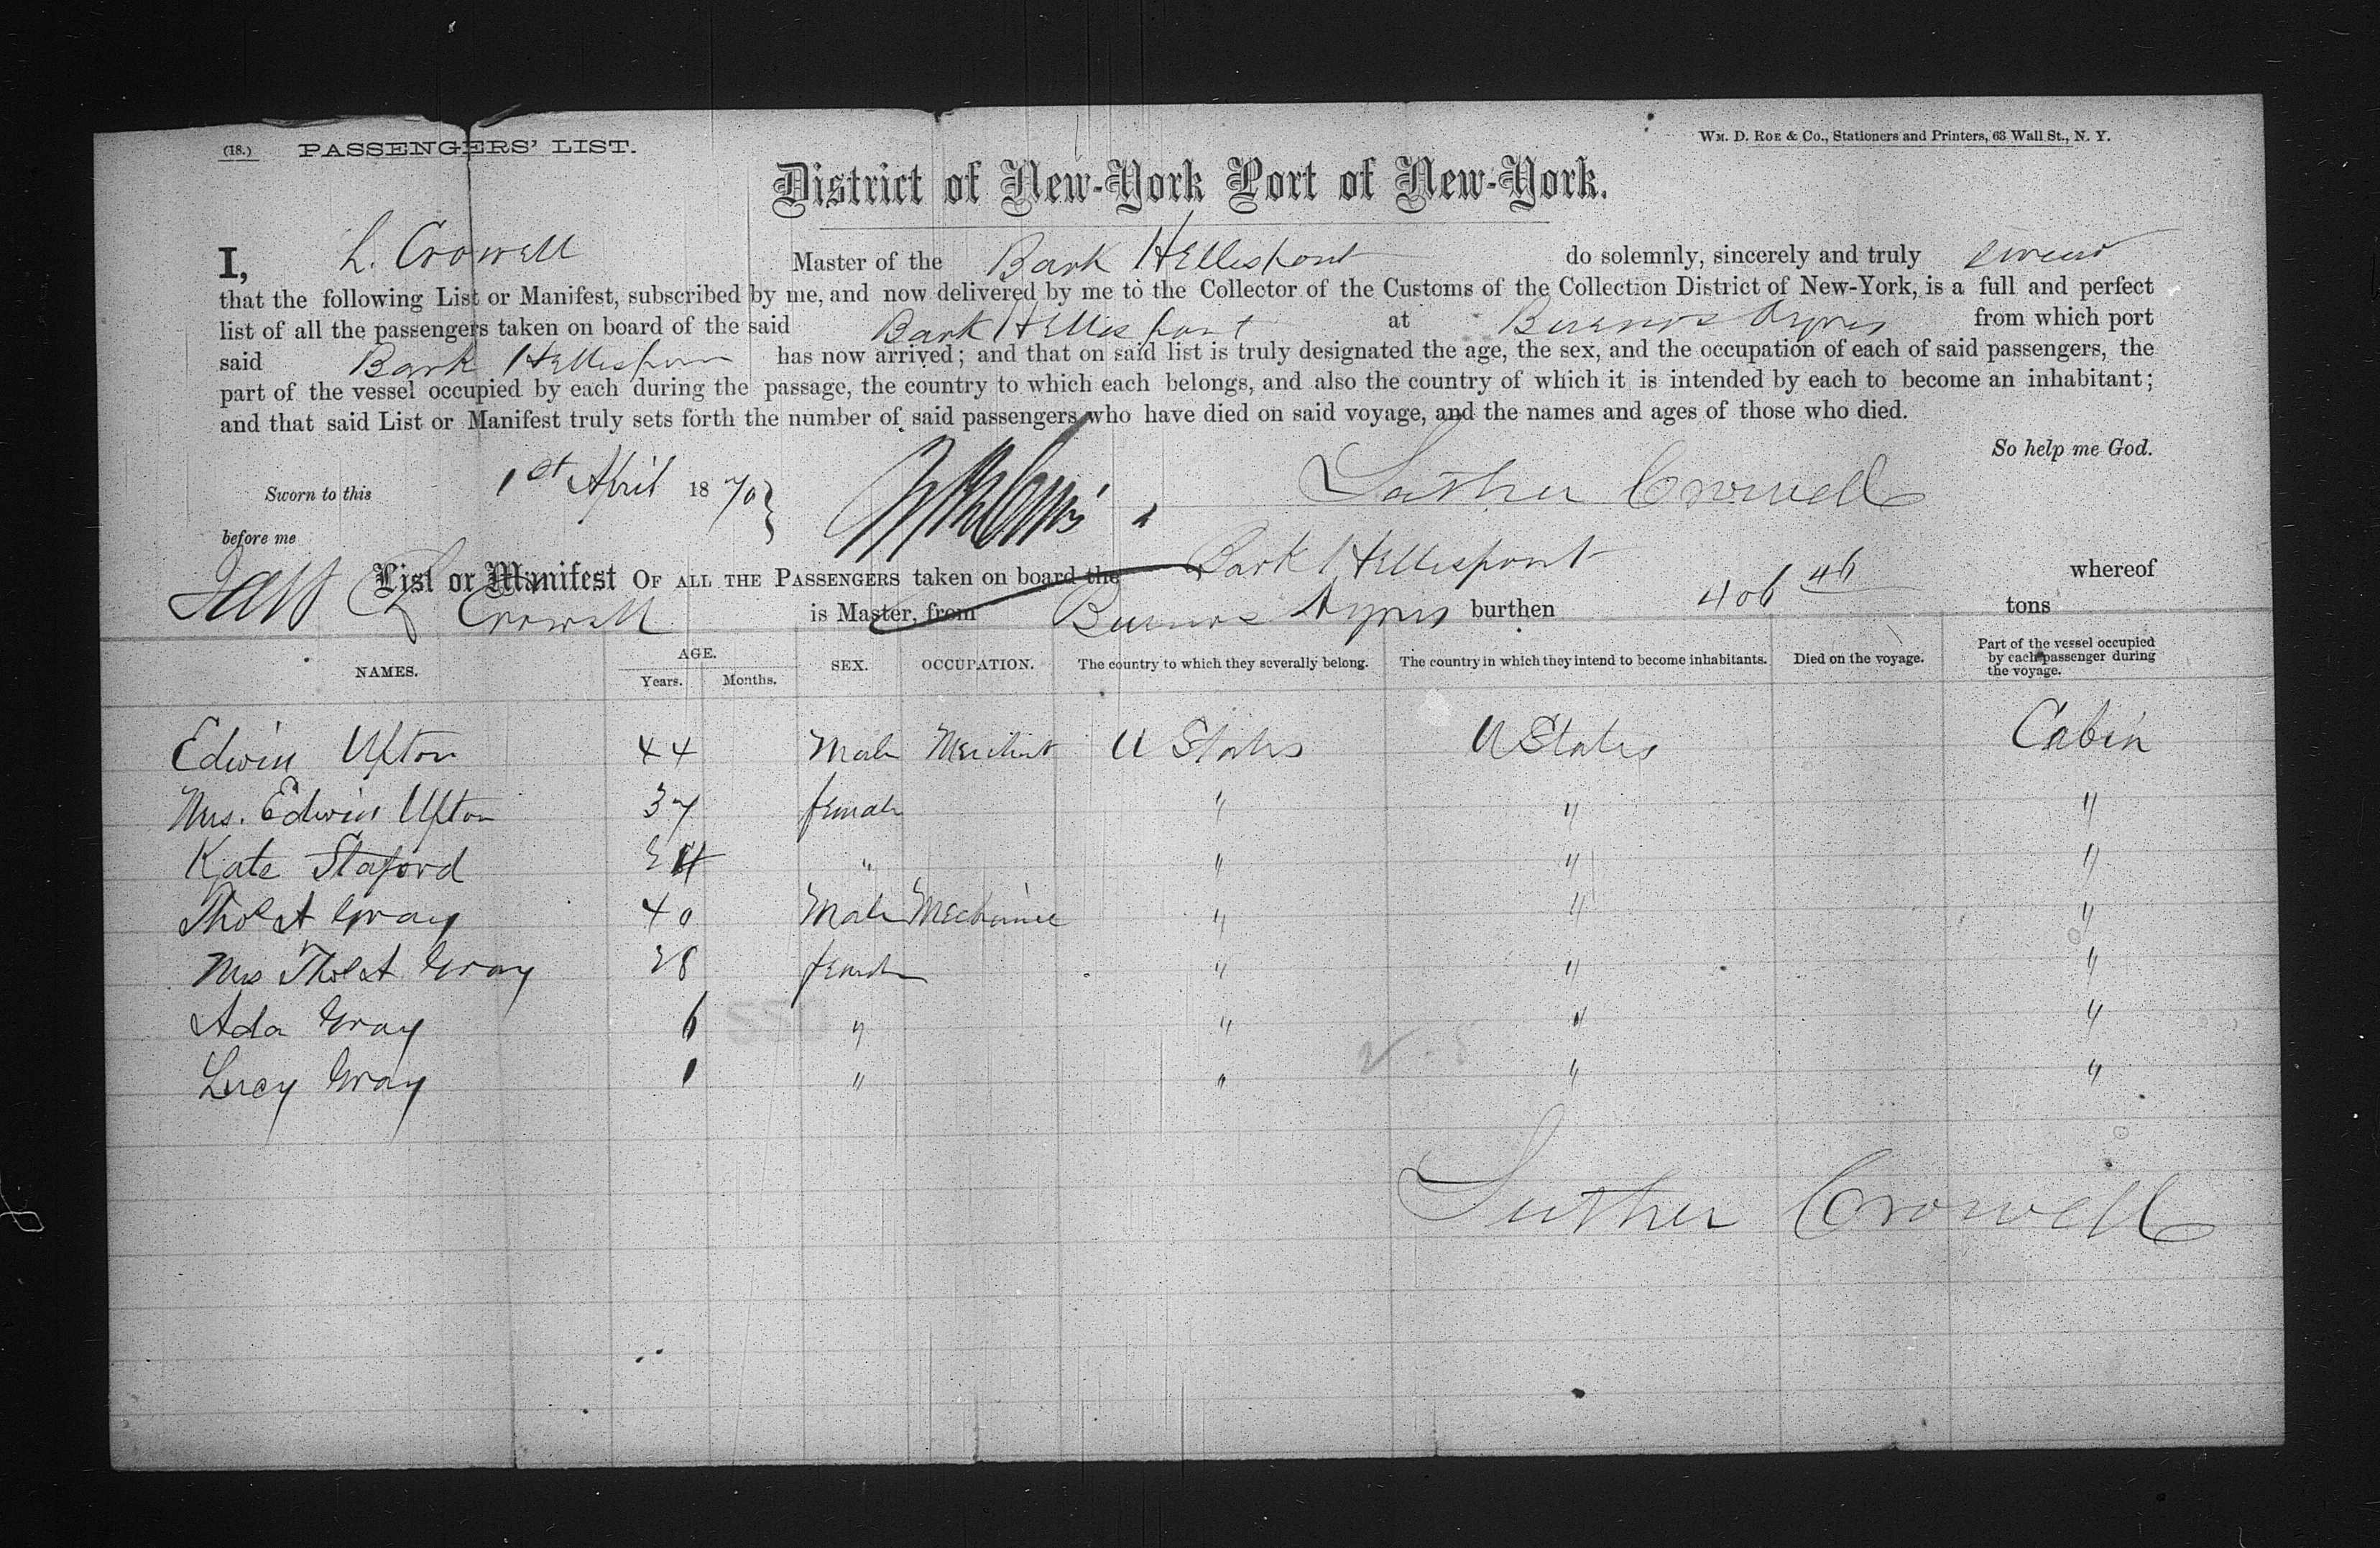 (18.) PASSENGERS' LIST. WM. D. ROE & CO., Stationers and Printers, 63 Wall St., N. Y.
District of New-York Port of New-York.
I, L. Crowell Master of the Bark Hellespont do solemnly, sincerely and truly swear
that the following List or Manifest, subscribed by me, and now delivered by me to the Collector of the Customs of the Collection District of New-York, is a full and perfect
list of all the passengers taken on board of the said Bark Hellespont at Buenos Ayres from which port
said Bark Hellespont has now arrived; and that on said list is truly designated the age, the sex, and the occupation of each of said passengers, the
part of the vessel occupied by each during the passage, the country to which each belongs, and also the country of which it is intended by each to become an inhabitant;
and that said List or Manifest truly sets forth the number of said passengers who have died on said voyage, and the names and ages of those who died.
So help me God.
Sworn to this 1st April 1870 Luther Crowell
before me
List or Manifest OF ALL THE PASSENGERS taken on board the Bark Hellespont whereof
Crowell is Master, from Buenos Ayres burthen 406 46 tons
NAMES. AGE. Years. Months. SEX. OCCUPATION. The country to which they severally belong. The country in which they intend to become inhabitants. Died on the voyage. Part of the vessel occupied by each passenger during the voyage.
Edwin Upton 44 Male Merchant U States U States Cabin
Mrs. Edwin Upton 37 female " " "
Kate Staford " " " "
Thos A Gray 40 Male Mechanic " " "
Mrs Thos A Gray 28 female " " "
Ada Gray 6 " " " "
Lucy Gray 1 " " " "
Luther Crowell